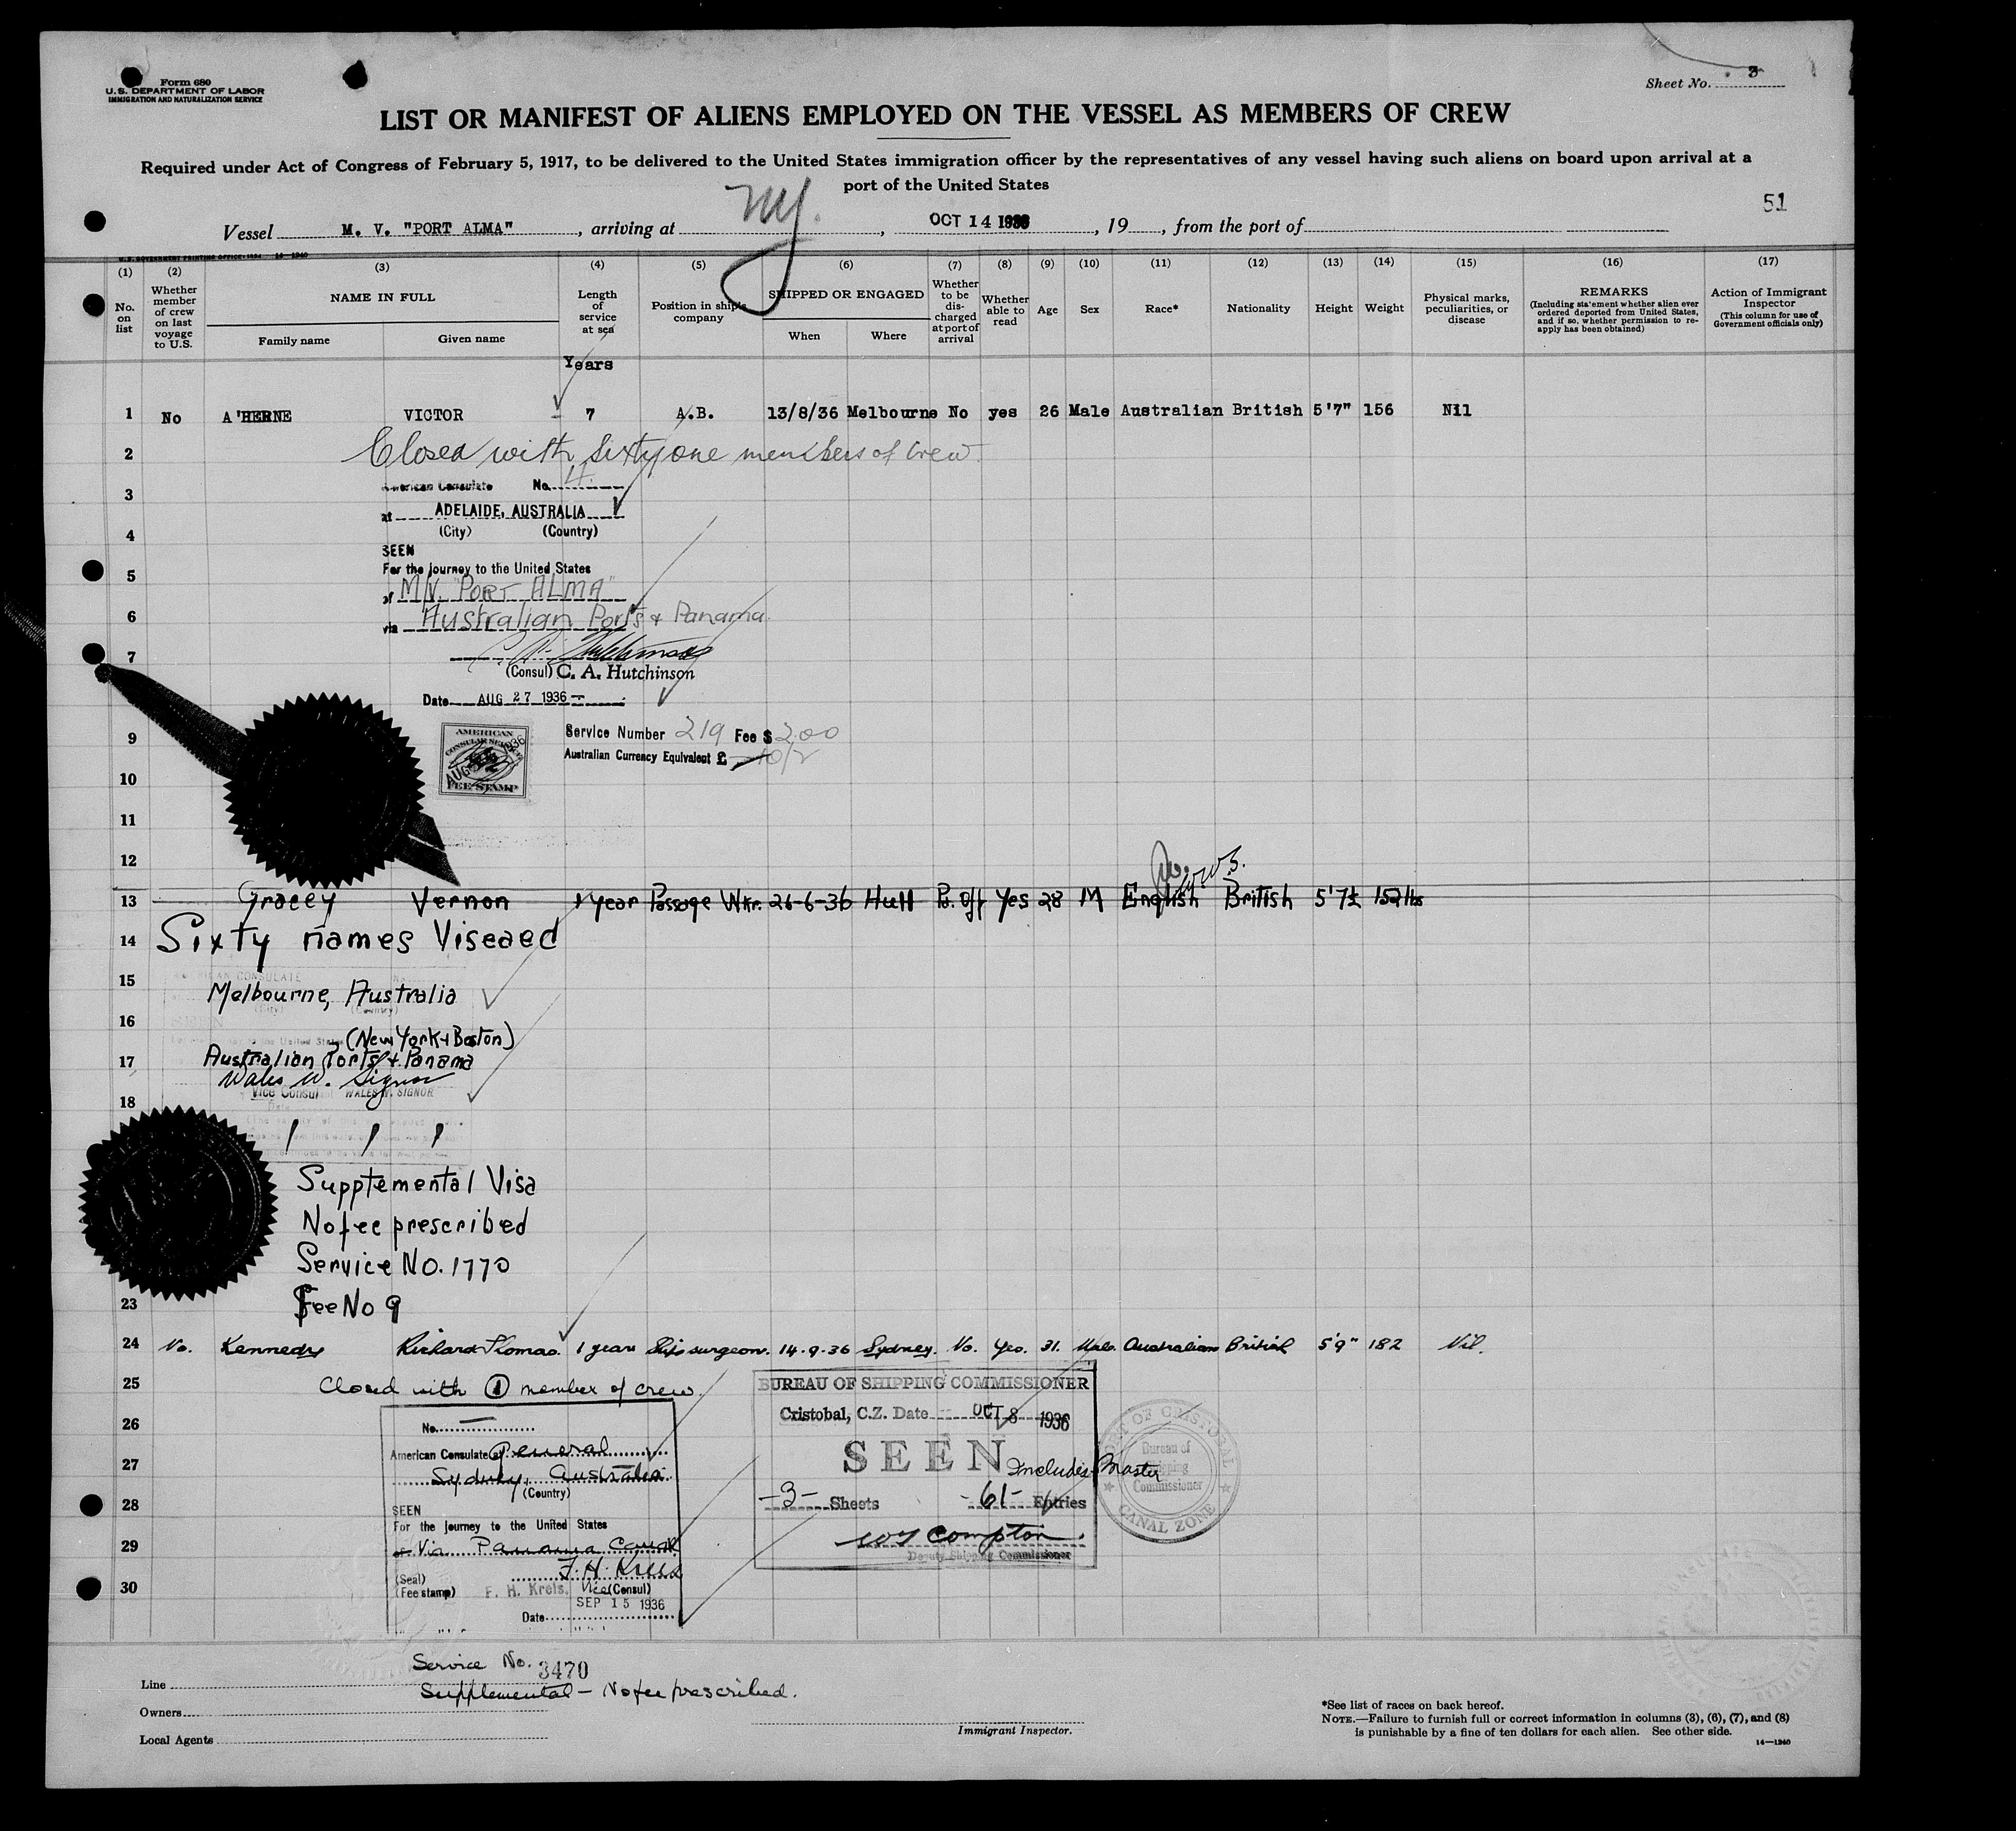 Form 680
U.S. DEPARTMENT OF LABOR
IMMIGRATION AND NATURALIZATION SERVICE
Sheet No. 3
LIST OR MANIFEST OF ALIENS EMPLOYED ON THE VESSEL AS MEMBERS OF CREW
Required under Act of Congress of February 5, 1917, to be delivered to the United States immigration officer by the representatives of any vessel having such aliens on board upon arrival at a
port of the United States
51
Vessel M. V. "PORT ALMA", arriving at NY., OCT 14 1936, 19, from the port of
(1) (2) (3) (4) (5) (6) (7) (8) (9) (10) (11) (12) (13) (14) (15) (16) (17)
No. on list
Whether member of crew on last voyage to U.S.
NAME IN FULL
Family name
Given name
Length of service at sea
Position in ship's company
SHIPPED OR ENGAGED
When
Where
Whether to be discharged at port of arrival
Whether able to read
Age
Sex
Race*
Nationality
Height
Weight
Physical marks, peculiarities, or disease
REMARKS
(Including statement whether alien ever ordered deported from United States, and if so, whether permission to re-apply has been obtained)
Action of Immigrant Inspector
(This column for use of Government officials only)
Years
1 No A'HERNE VICTOR 7 A.B. 13/8/36 Melbourne No yes 26 Male Australian British 5'7" 156 Nil
2 Closed with sixty one members of Crew.
3 American Consulate No. 4
at ADELAIDE, AUSTRALIA
4 (City) (Country)
SEEN
5 For the journey to the United States
of M/V. "PORT ALMA"
6 via Australian Ports & Panama.
7
(Consul) C. A. Hutchinson
Date AUG 27 1936
9 Service Number 219 Fee $ 2.00
Australian Currency Equivalent £ 10/2
AMERICAN
CONSULAR SERVICE
FEE STAMP
10
11
12
13 Gracey Vernon 1 year Passage Wkr. 26-6-36 Hull Pd. Off Yes 28 M English British 5'7½ 152 lbs
14 Sixty names Viseaed
15 Melbourne, Australia
16 (New York & Boston)
17 Australian Ports & Panama
Wales W. Signor
Vice Consul WALES W. SIGNOR
18
Supplemental Visa
No fee prescribed
Service No. 1770
23 Fee No 9
24 No. Kennedy Richard Thomas. 1 year Ship's surgeon. 14.9.36 Sydney. No. Yes. 31. Male. Australian British 5'9" 182 Nil.
25 Closed with 1 member of crew.
26 No.
American Consulate General
27 Sydney, Australia
(Country)
28 SEEN
For the journey to the United States
29 Via Panama Canal
F. H. Kreis
(Seal)
30 (Fee stamp) F. H. Kreis. Vice (Consul)
SEP 15 1936
Date
BUREAU OF SHIPPING COMMISSIONER
Cristobal, C.Z. Date OCT 8 1936
SEEN
Includes Master
-3- Sheets -61- Entries
Compton
Deputy Shipping Commissioner
PORT OF CRISTOBAL
Bureau of
Shipping
Commissioner
CANAL ZONE
Service No. 3470
Line
Supplemental - No fee prescribed.
Owners
Local Agents
Immigrant Inspector.
*See list of races on back hereof.
NOTE.—Failure to furnish full or correct information in columns (3), (6), (7), and (8)
is punishable by a fine of ten dollars for each alien. See other side.
14—1240